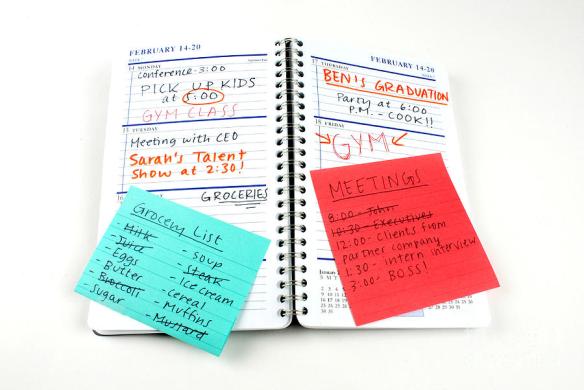 FEBRUARY 14-20
14 MONDAY
Conference-3:00
PICK UP KIDS
at 5:00
GYM CLASS
15 TUESDAY
Meeting with CEO
Sarah's Talent
Show at 2:30!
GROCERIES
Grocery List
- Milk
- Juice
- Eggs
- Butter
- Broccoli
- Sugar
- soup
- Steak
- Ice cream
- Cereal
- Muffins
- Mustard
FEBRUARY 14-20
17 THURSDAY
BEN'S GRADUATION
Party at 6:00
P.M. - COOK!!
18 FRIDAY
GYM
MEETINGS
8:00- John
10:30- Executives
12:00- Clients from
partner company
1:30- intern interview
3:00- BOSS!